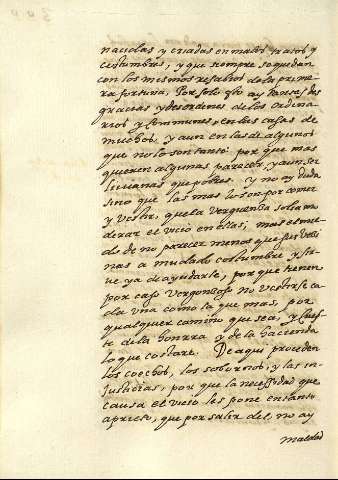 nacidas y criadas en malos tratos y
costumbres, y que siempre se quedan
con los mesmos resabios de la prime-
ra fortuna. Por solo esto ay tantas des
gracias y desordenes de los ordina-
rios y communes, en las casas de
muchos, y aun en las de algunos
que no lo son tanto: por que mas
quieren algunas parecer, y aun ser
livianas que pobres. y no ay duda
sino que las mas lo son por comer
y vestir, que la verguenza solia mo
derar el vicio en ellas; mas el mie-
do de no parecer menos que sus veci
nas a mudado costumbre y sir-
ve ya de ayudarle; por que tienen
por caso vergonzoso no vestirse ca-
da una como la que mas, por
qualquier camino que sea, y cues-
te de la honrra y de la hacienda
lo que costare. De aqui proceden
los coechos, los sobornos, y las in-
justicias, por que la necessidad que
causa el vicio les pone en tanto
aprieto, que por salir del, no ay
maldad